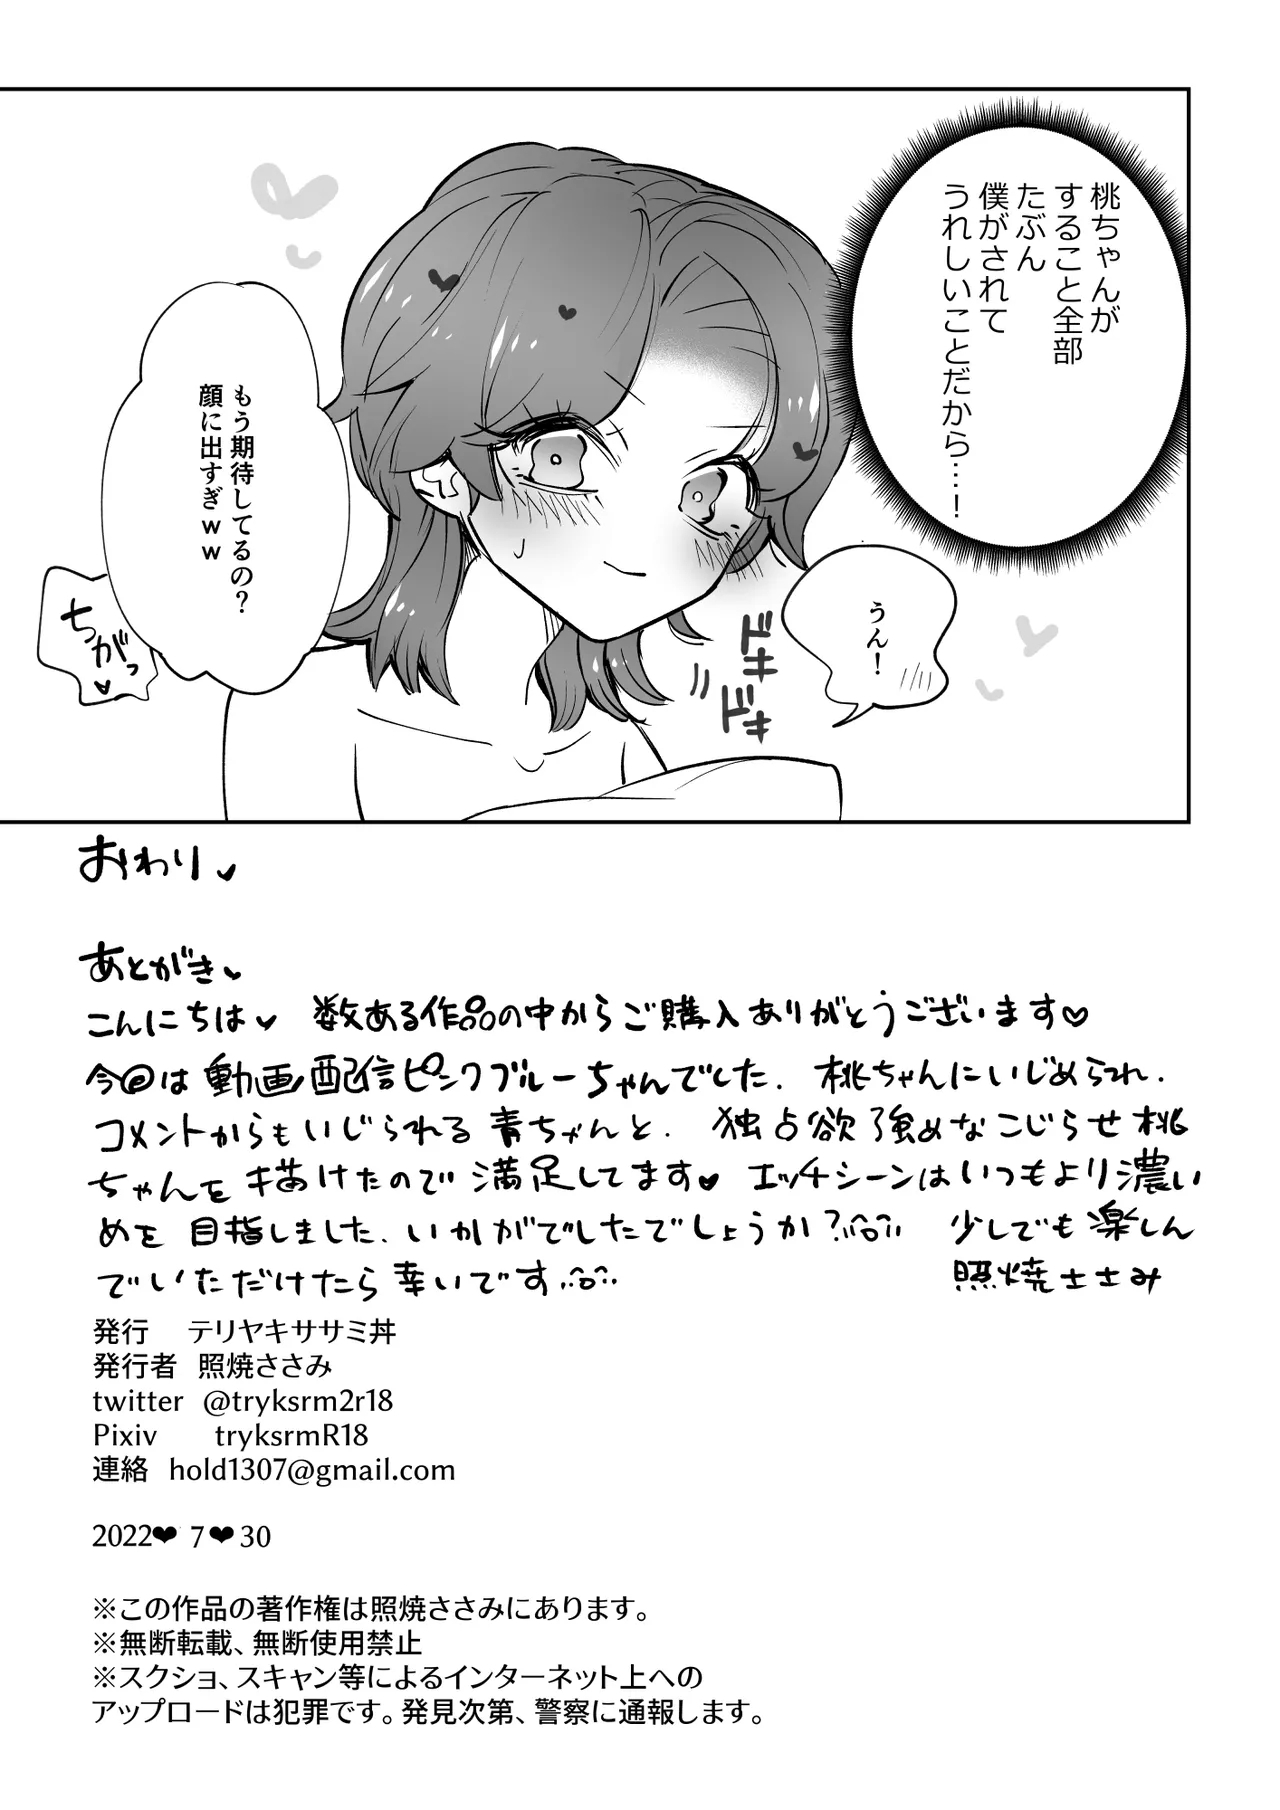 桃ちゃんが
すること全部
たぶん
僕がされて
うれしいことだから…！
うん！
ドキ
ドキ
もう期待してるの？
顔に出すぎｗｗ
ちがっ
おわり
あとがき
こんにちは♥ 数ある作品の中からご購入ありがとうございます♥
今回は動画配信ピンクブルーちゃんでした. 桃ちゃんにいじめられ.
コメントからもいじられる青ちゃんと. 独占欲強めなこじらせ桃
ちゃんを描けたので満足してます♥ エッチシーンはいつもより濃い
めを目指しました. いかがでしたでしょうか？ 少しでも楽しん
でいただけたら幸いです
照焼ささみ
発行 テリヤキササミ丼
発行者 照焼ささみ
twitter @tryksrm2r18
Pixiv tryksrmR18
連絡 hold1307@gmail.com
2022❤ 7 ❤ 30
※この作品の著作権は照焼ささみにあります。
※無断転載、無断使用禁止
※スクショ、スキャン等によるインターネット上への
アップロードは犯罪です。発見次第、警察に通報します。